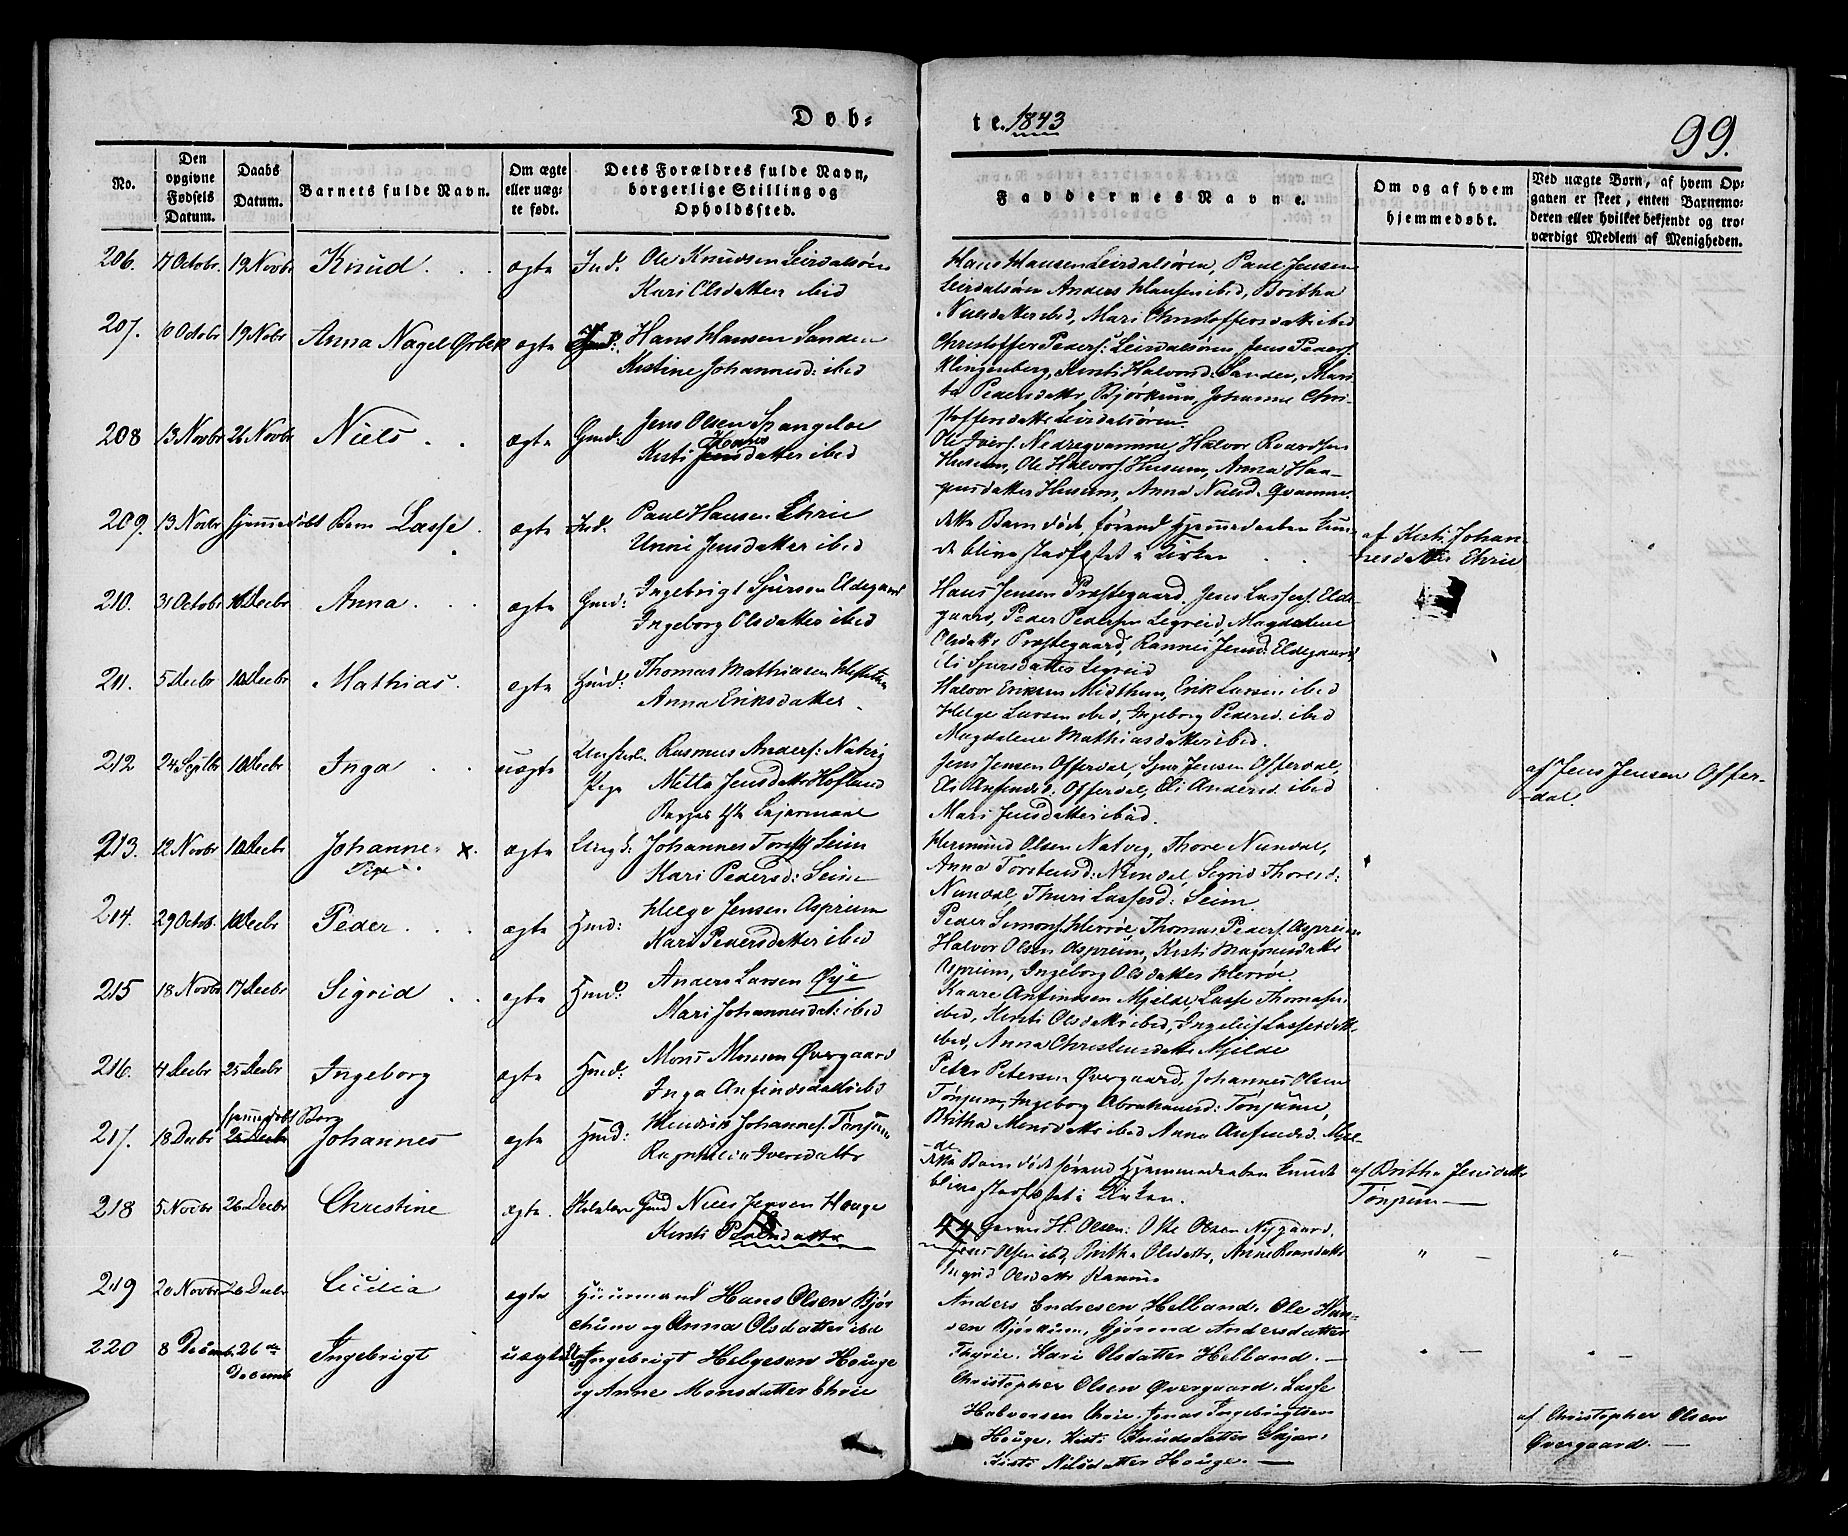 Døb-
te. 1843
99.
No.
Den opgivne Fødsels Datum.
Daabs Datum.
Barnets fulde Navn.
Om ægte eller uægte født.
Dets Forældres fulde Navn, borgerlige Stilling og Opholdssted.
Faddernes Navne.
Om og af hvem hjemmedøbt.
Ved uægte Børn, af hvem Opgaven er skeet, enten Barnemoderen eller hvilket bekjendt og troværdigt Medlem af Menigheden.
206. 17 Octobr 19 Novbr Knud ægte Ind. Ole Knudsen Leirdalsøren
Kari Olsdatter ibid
Hans Hansen Leirdalsøren, Paul Jensen
Leirdalsøren Anders Hansen ibid, Britha
Nielsdatter ibid, Mari Christoffersdatter ibid
207. 10 Octobr 19 Nobr Anna Nagel ægte Hans Hansen Sanden
Kirstine Johannesd: ibid
Christoffer Peders: Leirdalsøren Jens Peders:
Klingenberg, Kirsti Halvorsd: Sanden, Mari-
ta Pedersdatter Bjørkum, Johanne Chri-
stoffersdatter Leirdalsøren.
208 13 Novbr 26 Novbr Niels ægte Gmd: Jens Olsen Spangeloe
Kirsti datter ibid
Ole Ivers. Nedreqvamme, Halvor
Husum, Ole Halvors. Husum, Anna Haa-
gensdatter Husum, Anna Nielsd. Qvamme.
209. 13 Novbr hjemmedøbt Barn Lasse ægte Ind. Paul Hansen Ehrie
Unni Jensdatter ibid
dette Barn døde, førend Hjemmedaaben kun-
de blive stadfæstet i Kirken
af Kirsti Johan-
nesdatter Ehrie
210. 31 Octobr 10 Decbr Anna ægte Gmd: Ingebrigt Sjursen Eldegaard
Ingeborg Olsdatter ibid
Hans Jensen Præstegaard. Jens Lassers. Elde-
gaard, Peder Pedersen Legreid, Magdalene
Olsdatter Præstegaard, Rannei Jensd. Eldegaard,
Eli Sjursdatter Legreid
211. 5 Decbr 10 Decbr Mathias. ægte Hmd: Thomas Mathiasen
Anna Eriksdatter
Halvor Eriksen Midthun, Erik Larsen ibid
Helge Larsen ibid, Ingeborg Pedersd. ibid
Magdalene Mathiasdatter ibid.
212 24 Septbr 10 Decbr Inga uægte Rasmus Anders: Natvig
Mette Jensdatter Hofland
Begges 1ste Leiermaal
Jens Jensen Offerdal, Sjur Jensen Offerdal,
Eli Anfinsd: Offerdal, Eli Andersd. ibid
Mari Jensdatter ibid.
af Jens Jensen Offer-
-dal.
213. 12 Novbr 10 Decbr Johanne x ægte Johannes Seim
Pige
Kari Pedersd: Seim
Hermund Olsen Natvig, Thore Nundal,
Anna Torstensd: Nundal, Sigrid Thoresd:
Nundal, Thuri Lassesd: Seim.
214. 29 Octob. 10 Decbr Peder ægte Hmd: Helge Jensen Asprium
Kari Pedersdatter ibid
Peder Simons. Herrøe Thomas Peders. Asprium
Halvor Olsen Asprium, Kirsti Magnusdatter
Asprium, Ingeborg Olsdatter Herrøe
215 18 Novbr 17 Decbr Sigrid ægte Hmd: Anders Larsen Øye
Mari Johannesdat: ibid
Kaare Anfindsen Mjelde, Lasse Thomasen
ibid, Kirsti Olsdatter ibid, Ingelief Lassesdatt.
ibid, Anna Christensdatter Mjelde
216. 4 Decbr 25 Decbr Ingeborg ægte Hmd: Mons Monsen Øvergaard
Inga Anfindsdatter ibid
Peter Petersen Øvergaard, Johannes Olsen
Tønjum, Ingeborg Abrahamsd: Tønjum,
Britha Monsdatter ibid Anna Anfindsd. Mjel-
de
217. 18 Decbr hjemmedøbt Barn 25 Decbr Johannes ægte Hmd: Hendrik Johannes. Tønjum
Ragnhilda Iversdatter
dette Barn døde førend Hjemmedaaben kunde
blive stadfæstet i Kirken.
af Britha Jensdatter
Tønjum —
218 5 Novbr 26 Decbr Christine ægte. Gmd Niels Jensen Hauge
Kirsti Pedersdatter
H. Olsen: Ole Olsen Nygaard,
Jens Olsen ibid, Britha Olsdatter, Anne
Sigrid Olsdatter
" —
" —
219 20 Novbr 26 Decbr Cicilia ægte Huusmand Hans Olsen Bjør-
chum og Anna Olsdatter ibid
Anders Endresen Helland. Ole Han-
sen Bjørkum, Gjørind Andersdatter
Thyrie. Kari Olsdatter Helland. —
" —
" —
220 8 Decemb. 26de Decemb Ingebrigt uægte Ingebrigt Helgesen Houge
og Anne Monsdatter Ehrie
Christopher Olsen Øvergaard. Lasse
Halvorsen Ehrie. Jonas Ingebrigtsen
Houge. Kirsti Knudsdatter Skjær.
Kirsti Nilsdatter Houge. —
af Christopher Olsen
Øvergaard. —